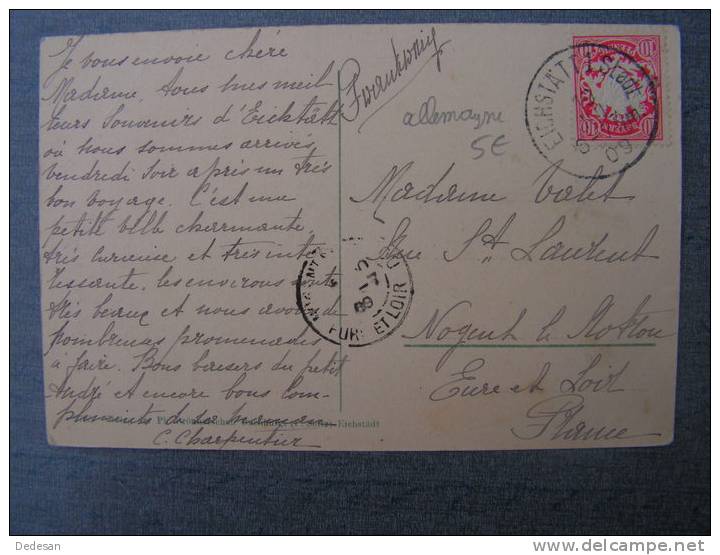 Je vous envoie chère
Madame, tous mes meil
leurs Souvenirs d'Eichstätt
où nous sommes arrivés
vendredi soir après un très
bon voyage. C'est une
petite ville charmante
très curieuse et très inté
ressante, les environs sont
très beaux et nous avons de
nombreuses promenades
à faire. Bons baisers du petit
André et encore bons com-
pliments de sa maman
C. Charpentier
Eichstätt
Frankreich
allemagne
5€
EICHSTÄTT Stadt
09
BAYERN
10
Madame Valet
Rue St Laurent
Nogent le Rotrou
Eure et Loir
France
EURE ET LOIR
Dedesan
http://www.delcampe.net